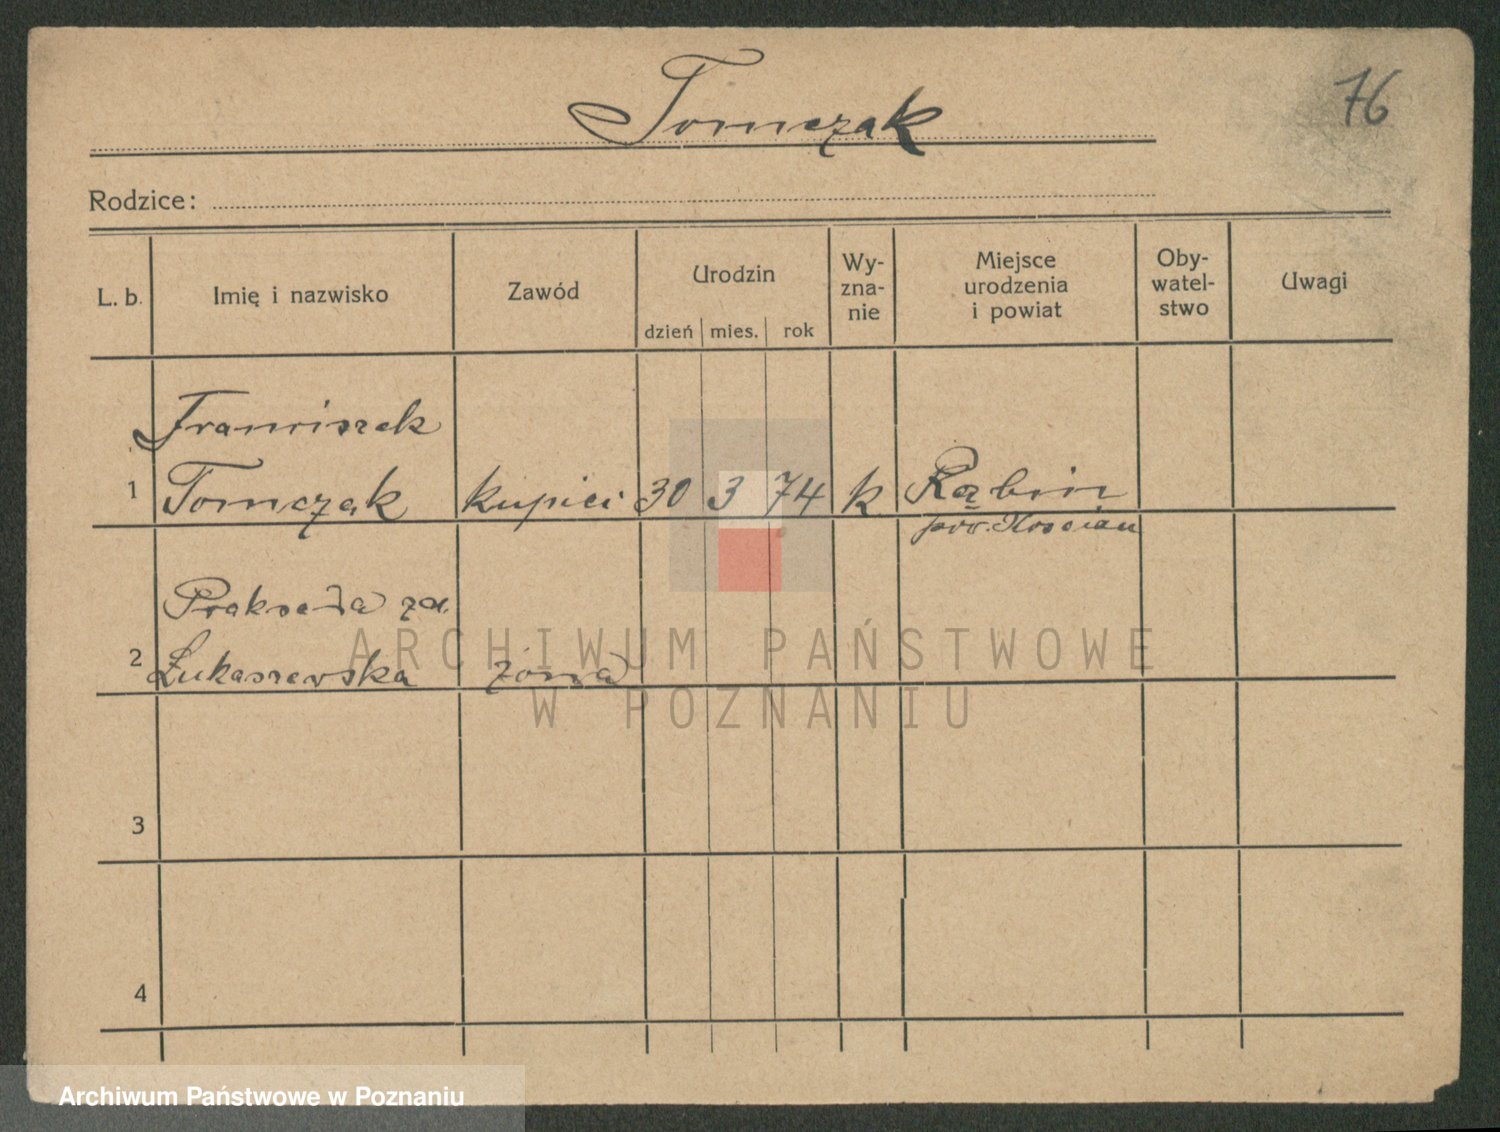 Tomczak
76
Rodzice:
L. b.
Imię i nazwisko
Zawód
Urodzin
dzień mies. rok
Wy-
zna-
nie
Miejsce
urodzenia
i powiat
Oby-
watel-
stwo
Uwagi
Franciszek
1 Tomczak kupiec 30 3 74 k Rąbin
pow. Kościan
Prakseda
2 Łukaszewska żona
3
4
ARCHIWUM PAŃSTWOWE
W POZNANIU
Archiwum Państwowe w Poznaniu